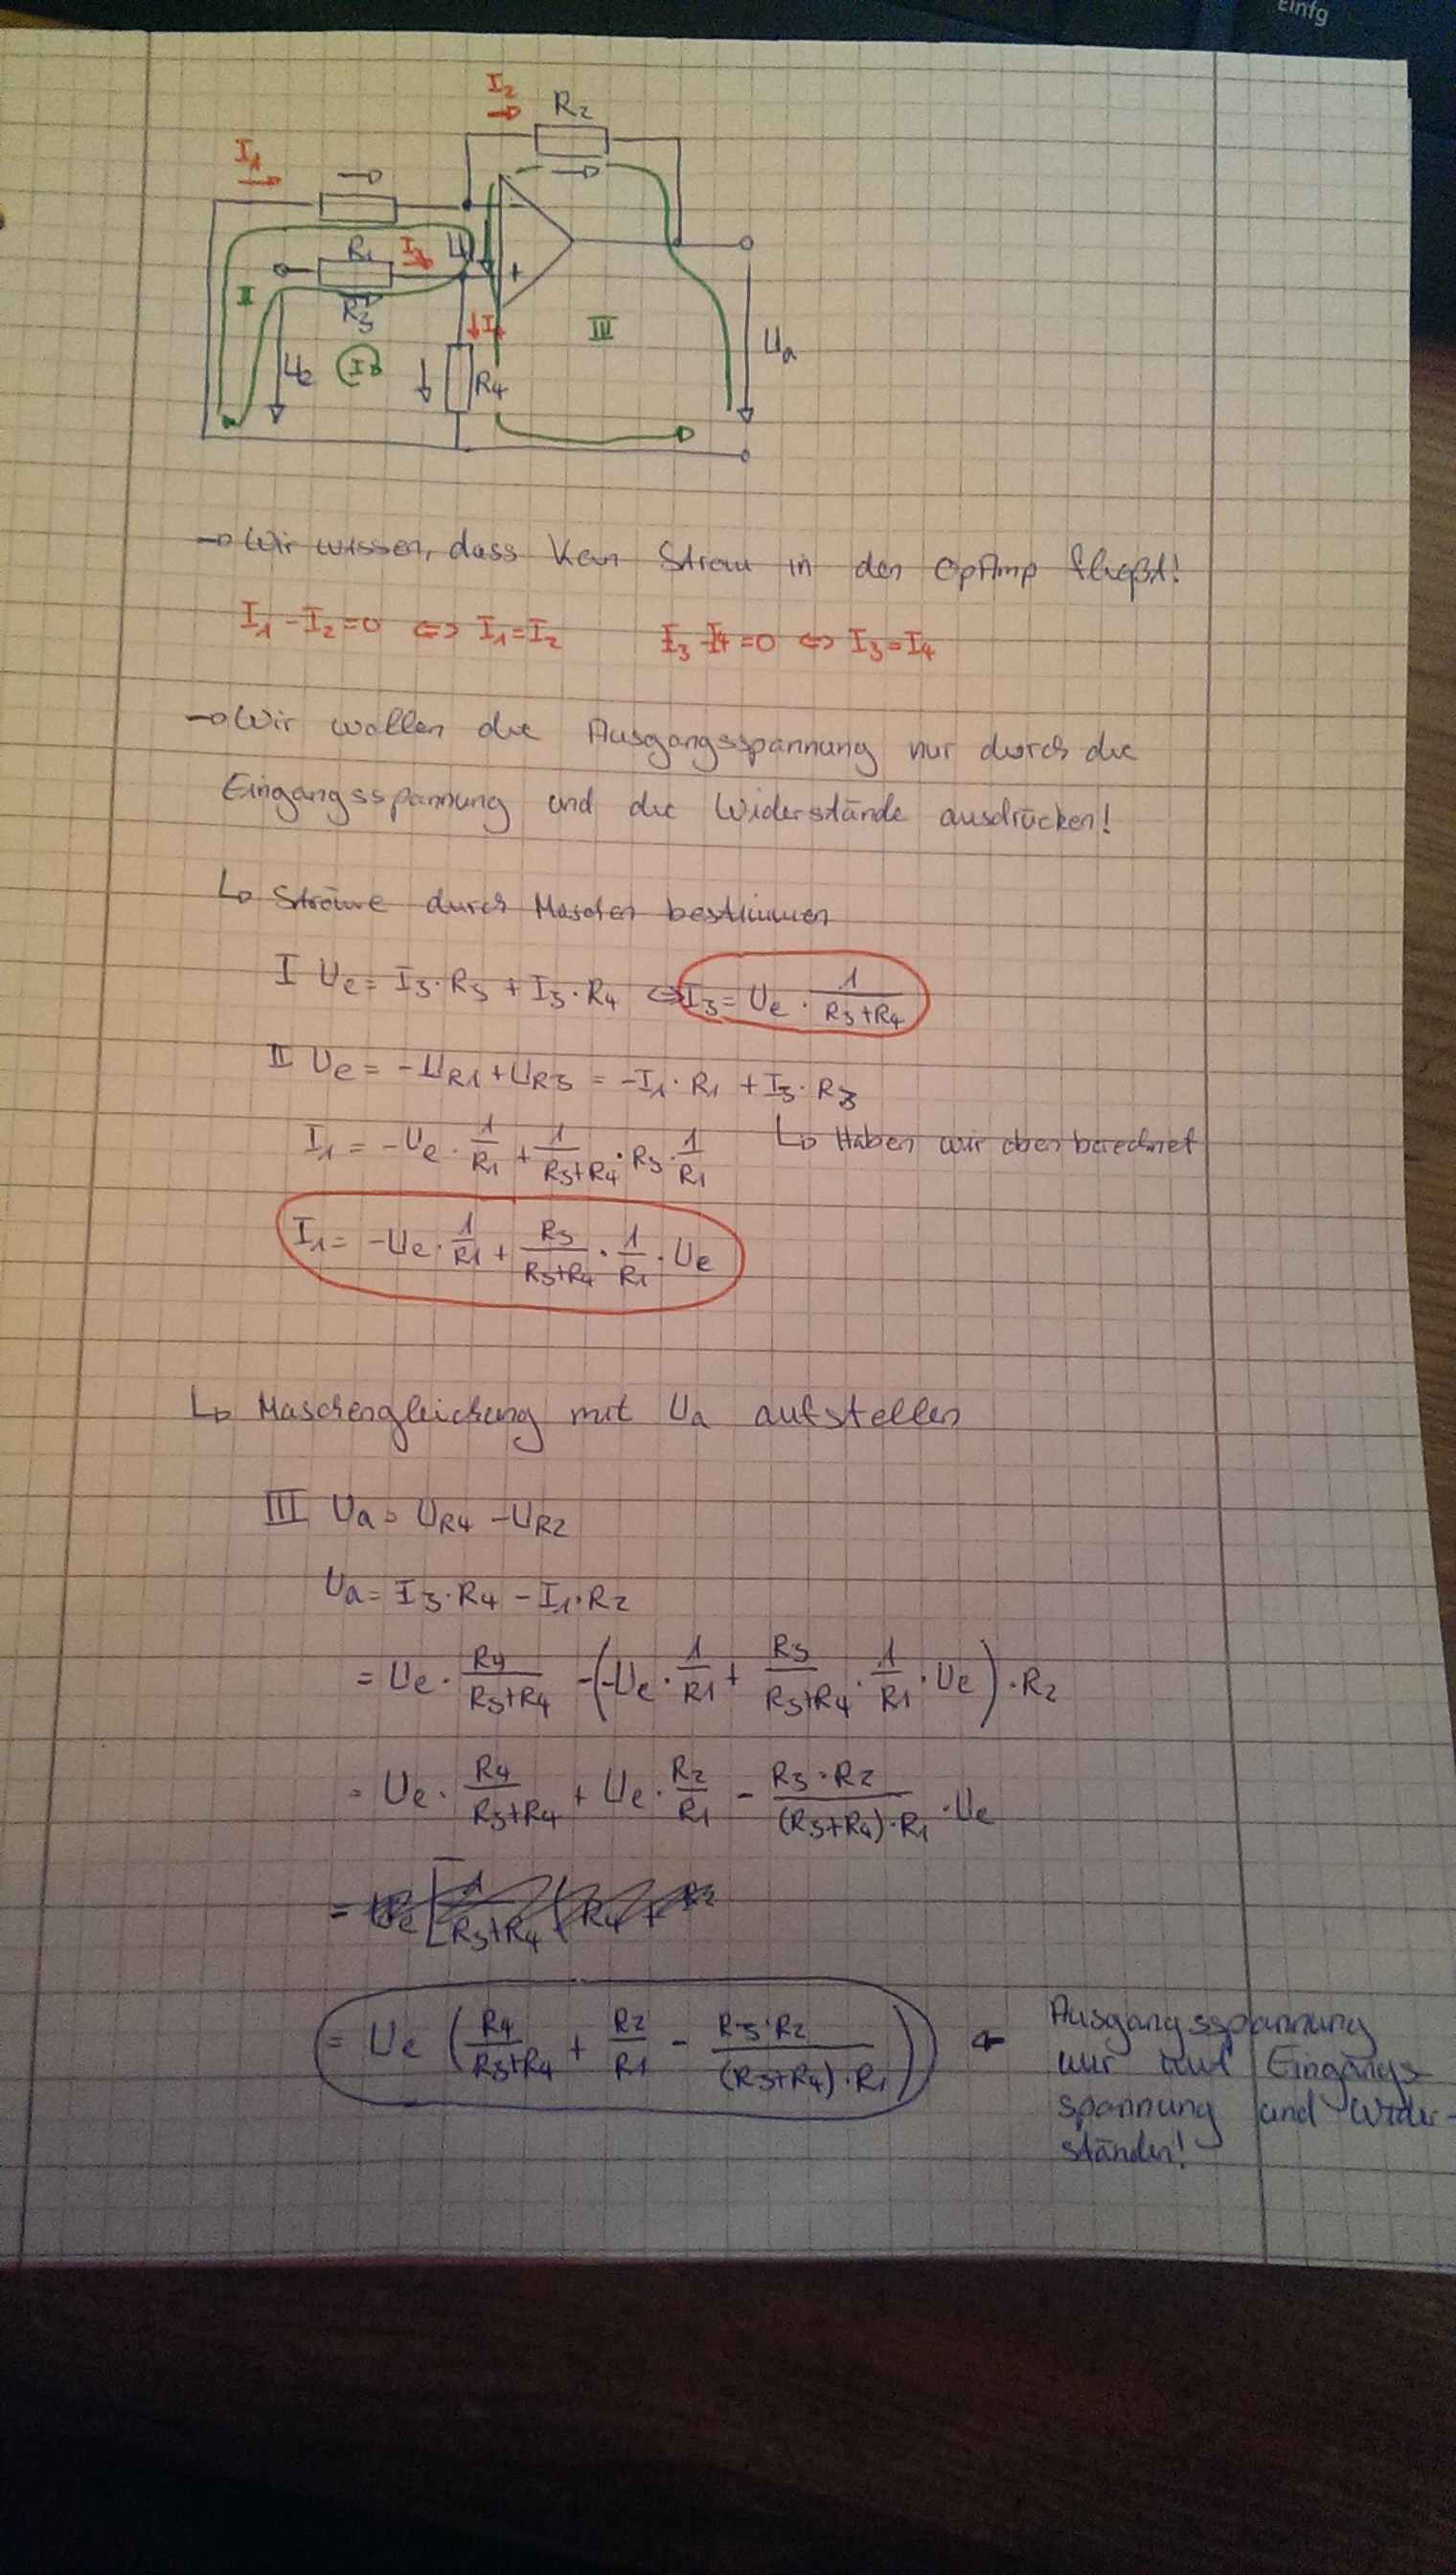 Einfg
I₂
R₂
I₁
R₁
I₃
U
-
+
II
R₃
I
U₂
I₄
R₄
III
Ua
→ Wir wissen, dass kein Strom in den OpAmp fließt!
I₁ - I₂ = 0 ⇔ I₁ = I₂ I₃ - I₄ = 0 ⇔ I₃ = I₄
→ Wir wollen die Ausgangsspannung nur durch die
Eingangsspannung und die Widerstände ausdrücken!
↳ Ströme durch Maschen bestimmen
I Ue = I₃·R₃ + I₃·R₄ ⇔ I₃ = Ue · 1/(R₃+R₄)
II Ue = -UR1 + UR3 = -I₁·R₁ + I₃·R₃
I₁ = -Ue · 1/R1 + 1/(R₃+R₄) · R₃ · 1/R1 ↳ Haben wir oben berechnet
I₁ = -Ue · 1/R1 + R₃/(R₃+R₄) · 1/R1 · Ue
↳ Maschengleichung mit Ua aufstellen
III Ua = UR4 - UR2
Ua = I₃·R₄ - I₁·R₂
= Ue · R4/(R₃+R₄) - (-Ue · 1/R1 + R₃/(R₃+R₄) · 1/R1 · Ue) · R₂
= Ue · R4/(R₃+R₄) + Ue · R₂/R1 - R₃·R₂/((R₃+R₄)·R₁) · Ue
= Ue (R4/(R₃+R₄) + R2/R1 - R₃·R₂/((R₃+R₄)·R₁)) ←
Ausgangsspannung
nur mit Eingangs-
spannung und Wider-
ständen!